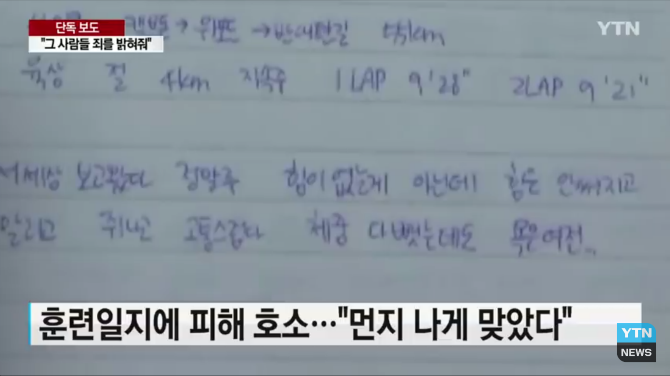 단독 보도
"그 사람들 죄를 밝혀줘"
YTN
→ 위포드 → 반대편길 km
육상 4km 지속주 1LAP 9'28" 2LAP 9'21"
보고팠다 힘이 없는게 아닌데 힘은 안써지고
말리고 쥐나고 고통스럽다 체중 다뺏는데도 욕은여전..
훈련일지에 피해 호소…"먼지 나게 맞았다"
YTN
NEWS